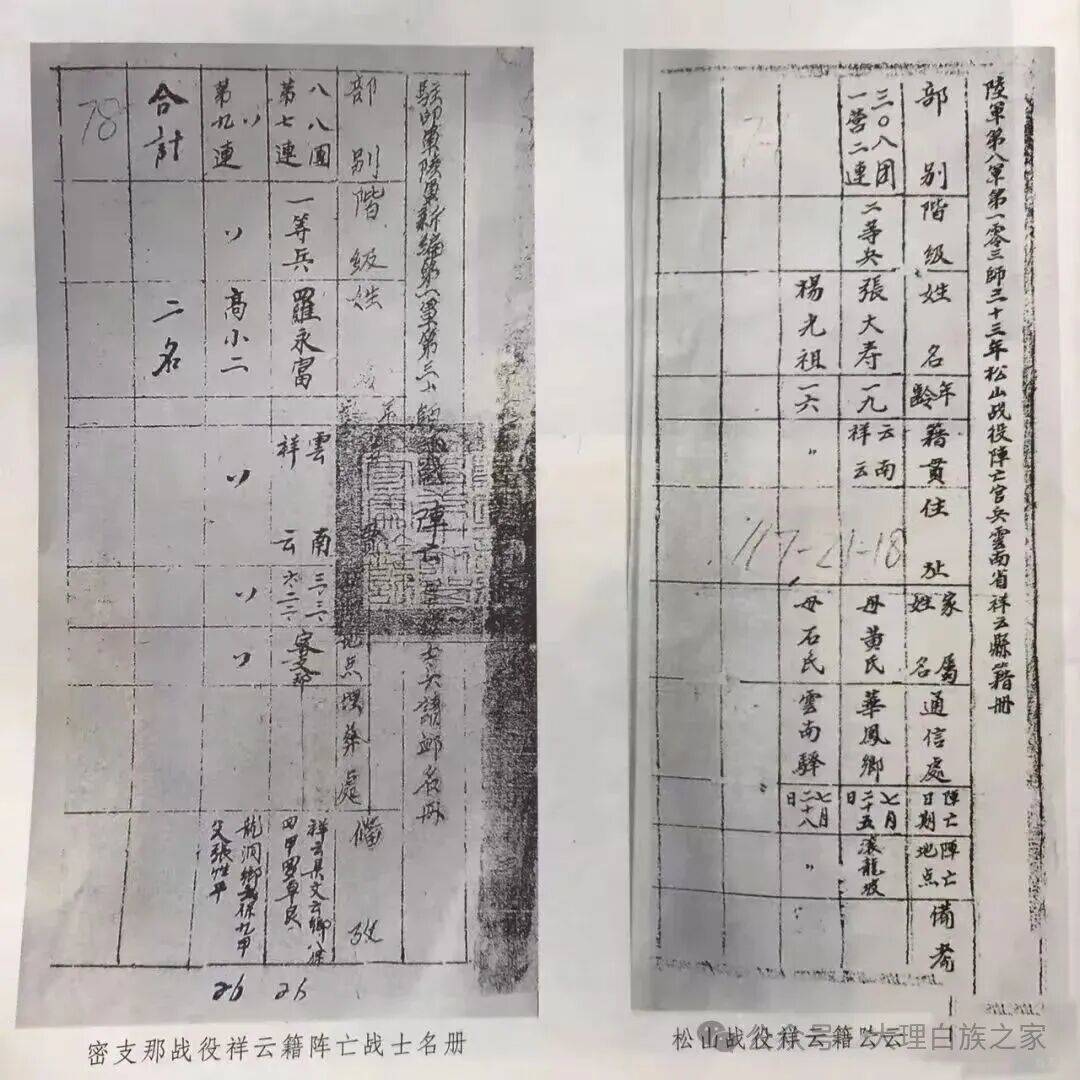 駐印軍陸軍新編第一軍第三十師
陣亡
士兵請卹名冊
部別
階級
姓
地点埋葬處
備攷
八八團
第七連
一等兵
羅永富
雲南
祥云
三三、
六、二二、
密支那
祥云县文云鄉八保
四甲羅草良
26
〃
第九連
〃
高小二
〃
〃
〃
龍洞鄉五保九甲
父張性平
26
合計
二名
78
密支那战役祥云籍阵亡战士名册
陸軍第八軍第一零三師三十三年松山战役陣亡官兵雲南省祥云縣籍册
部別
階級
姓名
年齡
籍貫住址
家屬姓名
通信處
陣亡日期
陣亡地点
備考
三〇八团
一营二連
二等兵
張大寿
一九
云南
祥云
母黄氏
華鳳鄉
七月二十五日
滚龍坡
楊光祖
一六
〃
母石氏
雲南驛
七月二十八日
〃
117-21-18
松山战役祥云籍
公众号·大理白族之家